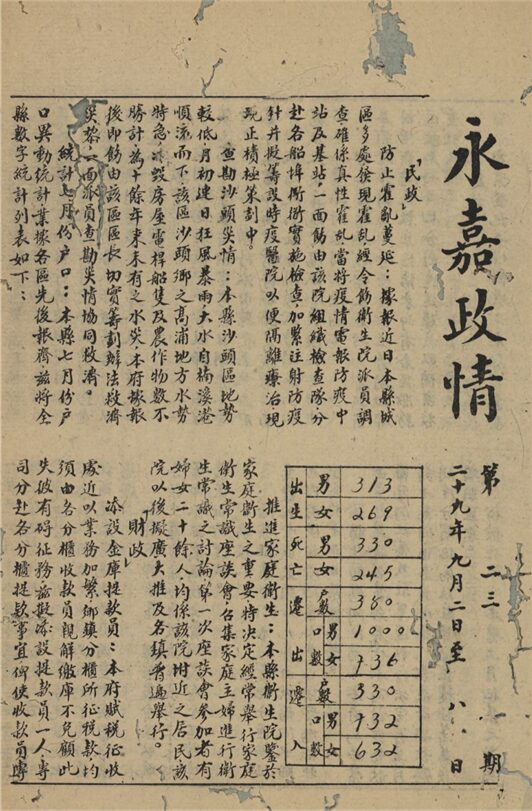 永嘉政情
第二三期
二十九年九月二日至八日
「民政」
防止霍亂蔓延：據報近日本縣城
區多處發現霍亂經令飭衛生院派員調
查確係真性霍亂，當將疫情電報防疫中
站及基站，一面飭由該院組織檢查隊，分
赴各船埠衖衖實施檢查，加緊注射防疫
針并擬籌設時疫醫院以便隔離療治現
現止積極策劃中。
查勘沙頭災情：本縣沙頭區地勢
較低月初連日狂風暴雨大水自楠溪港
順流而下該區沙頭鄉之高浦地方水勢
特急，沖毀房屋電桿船隻及農作物數不
勝計，為十餘年來未有之水災，本府據報
後即飭由該區區長切實籌劃辦法救濟
災黎，一面派員查勘災情協同救濟。
統計七月份戶口：本縣七月份戶
口異動統計業據各區先後報齊茲將全
縣數字統計列表如下：
出生 男 313
女 269
死亡 男 330
女 245
遷出 戶數 380
口數 男 1000
女 736
遷入 戶數 330
口數 男 732
女 632
推進家庭衛生：本縣衛生院鑒於
家庭衛生之重要特決定經常舉行家庭
衛生常識座談會，召集家庭主婦進行衛
生常識之討論，第一次座談會參加者有
婦女二十餘人，均係該院附近之居民該
院以後擬廣大推及各鎮普遍舉行。
「財政」
添設金庫提款員：本府賦稅征收
處近以業務加繁鄉鎮分櫃所征稅款均
須由各分櫃收款員親解繳庫不免顧此
失彼有碍征務茲擬添設提款員一人專
司分赴各分櫃提款事宜俾使收款員專